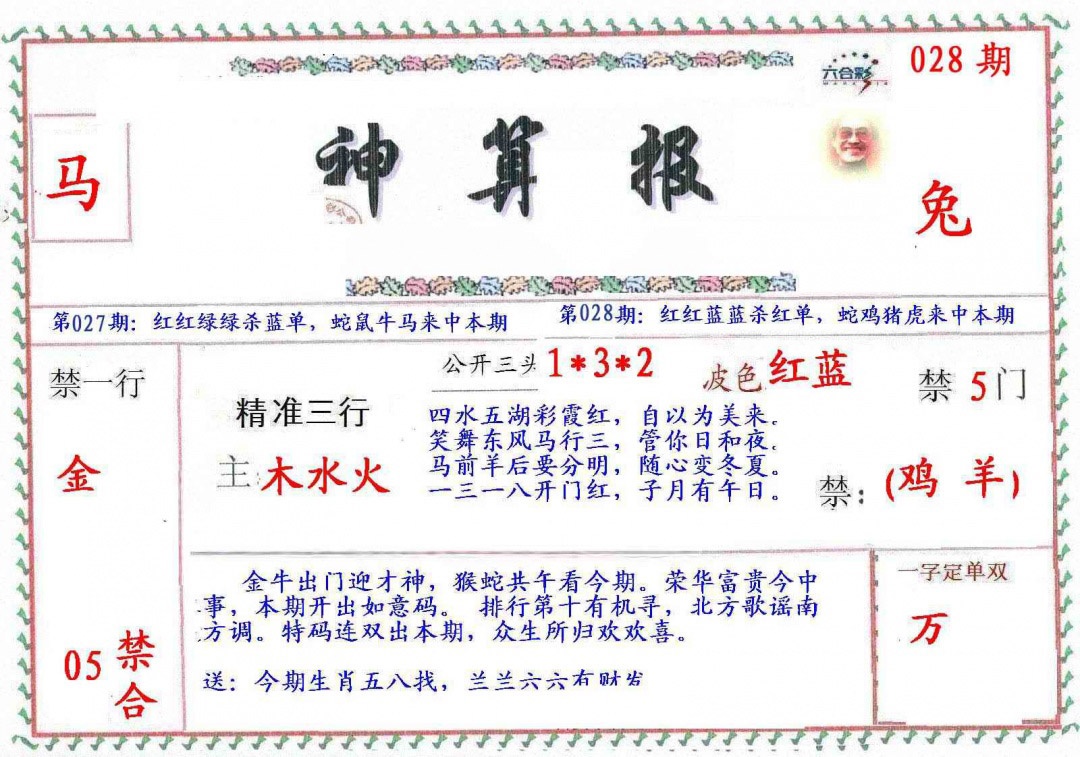 六合彩
028期
马
神算报
兔
第027期：红红绿绿杀蓝单，蛇鼠牛马来中本期
第028期：红红蓝蓝杀红单，蛇鸡猪虎来中本期
禁一行
金
05
禁合
精准三行
主:木水火
公开三头 1*3*2
波色 红蓝
四水五湖彩霞红，自以为美来。
笑舞东风马行三，管你日和夜。
马前羊后要分明，随心变冬夏。
一三一八开门红，子月有午日。
禁 5 门
禁：(鸡 羊)
金牛出门迎才神，猴蛇共午看今期。荣华富贵今中
事，本期开出如意码。 排行第十有机寻，北方歌谣南
方调。特码连双出本期，众生所归欢欢喜。
送：今期生肖五八找，兰兰六六有财发
一字定单双
万